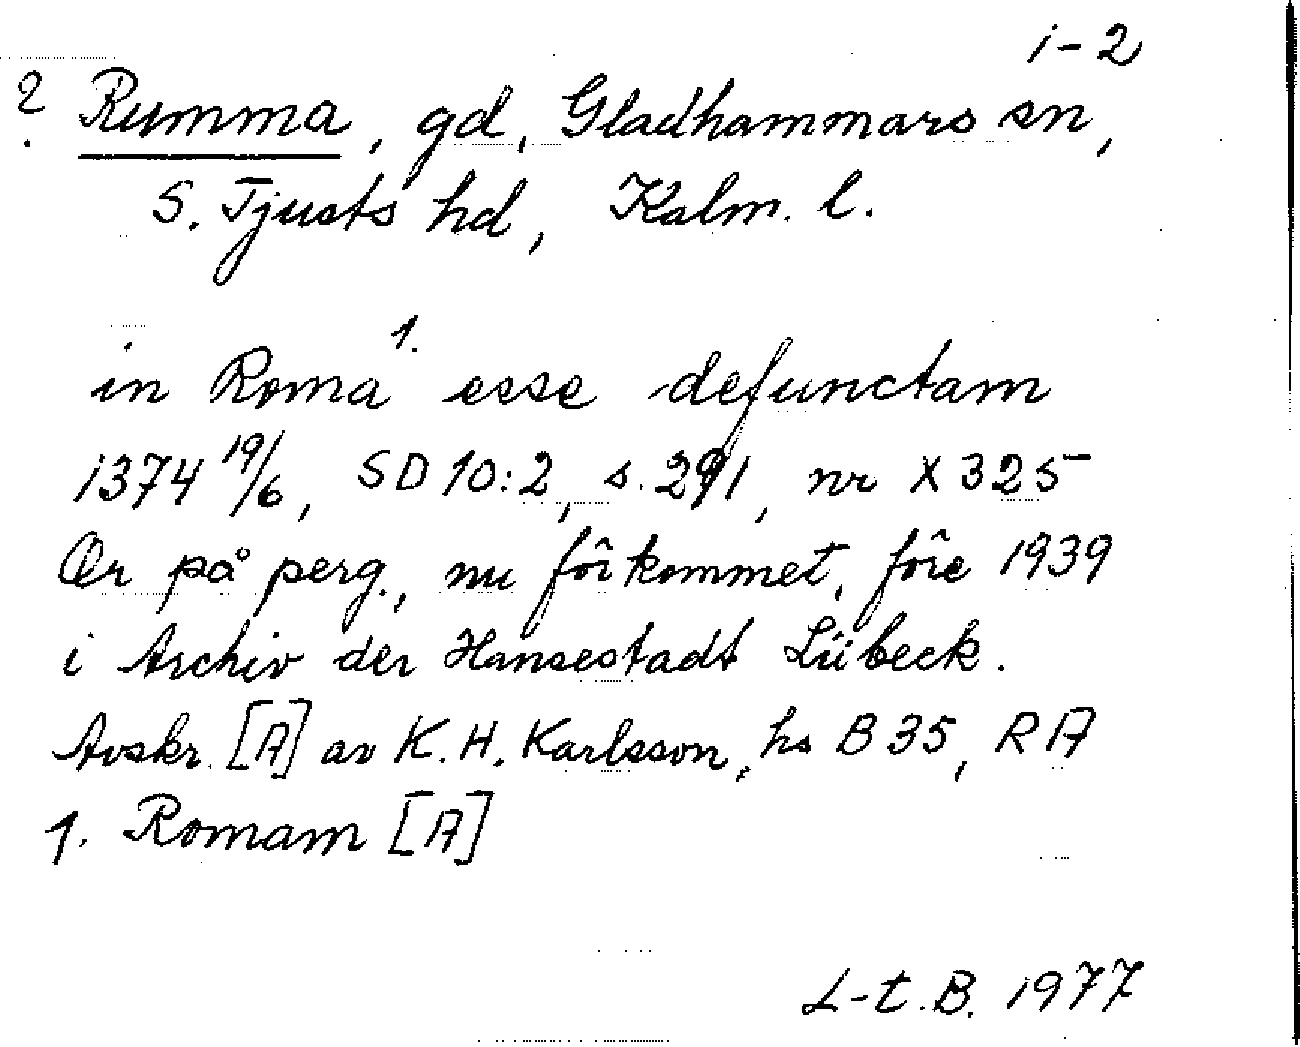 i-2
? Rumma, gd, Gladhammars sn,
S. Tjusts hd, Kalm. l.
in Roma¹· esse defunctam
1374 19/6, SD 10:2, s. 291, nr X 325
Or på perg., nu förkommet, före 1939
i Archiv der Hansestadt Lübeck.
Avskr. [A] av K.H. Karlsson, hs B 35, RA
1. Romam [A]
L-t.B. 1977